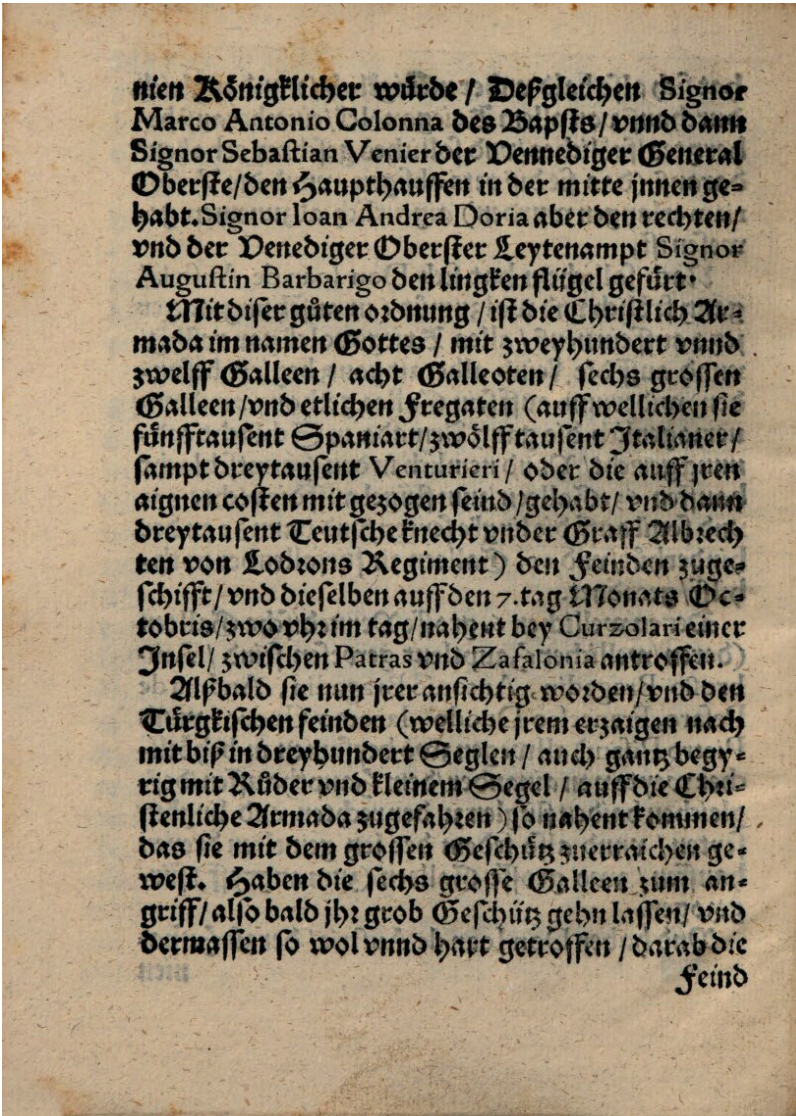 nien Königklicher wůrde / Deßgleichen Signor
Marco Antonio Colonna des Bapſts / vnnd dann
Signor Sebaſtian Venier der Vennediger General
Oberſte / den Haupthauffen in der mitte jnnen ge⸗
habt. Signor Ioan Andrea Doria aber den rechten /
vnd der Venediger Oberſter Leytenampt Signor
Auguſtin Barbarigo den lingken flügel gefürt.
Mit diſer gůten ordnung / iſt die Chriſtlich Ar⸗
mada im namen Gottes / mit zweyhundert vnnd
zwelff Galleen / acht Galleoten / ſechs groſſen
Galleen / vnd etlichen Fregaten (auff wellichen ſie
fünfftauſent Spaniart / zwölff tauſent Italianer /
ſampt dreytauſent Venturieri / oder die auff jren
aignen coſten mit gezogen ſeind / gehabt / vnd dann
dreytauſent Teutſche knecht vnder Graff Albrech
ten von Lodrons Regiment) den Feinden zuge⸗
ſchifft / vnd dieſelben auff den 7. tag Monats Oc⸗
tobris / zwo vhr im tag / nahent bey Curzolari einer
Inſel / zwiſchen Patras vnd Zafalonia antroffen.
Alßbald ſie nun jrer anſichtig worden / vnd den
Türgkiſchen feinden (welliche jrem erzaigen nach
mit biß in dreyhundert Seglen / auch gantz begy⸗
rig mit Růder vnd kleinem Segel / auff die Chri⸗
ſtenliche Armada zugefahren) ſo nahent kommen /
das ſie mit dem groſſen Geſchütz zuerraichen ge⸗
weſt. Haben die ſechs groſſe Galleen zum an⸗
griff / alſo bald jhr grob Geſchütz gehn laſſen / vnd
dermaſſen ſo wol vnnd hart getroffen / darab die
Feind